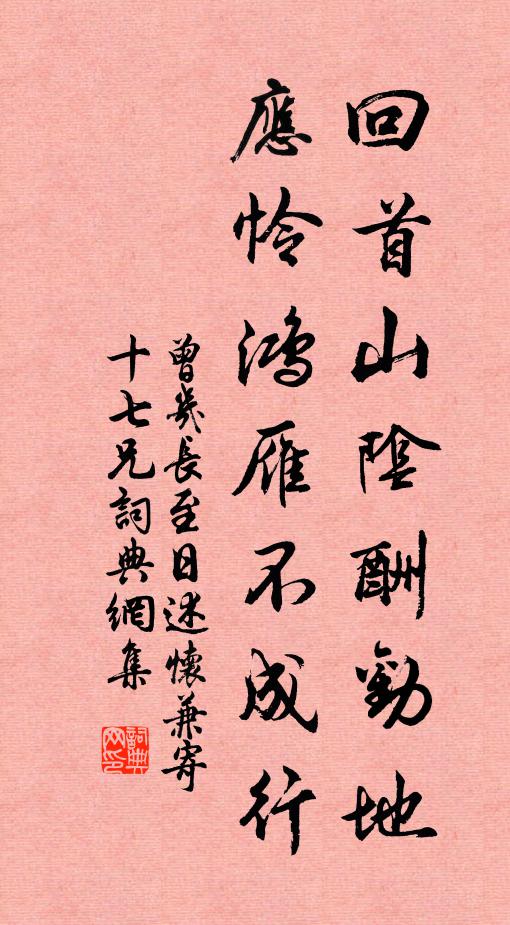 回首山陰酬勸地
應怜鴻雁不成行
曾幾長至日述懷兼寄
十七兄詞典網集
詞典
网印